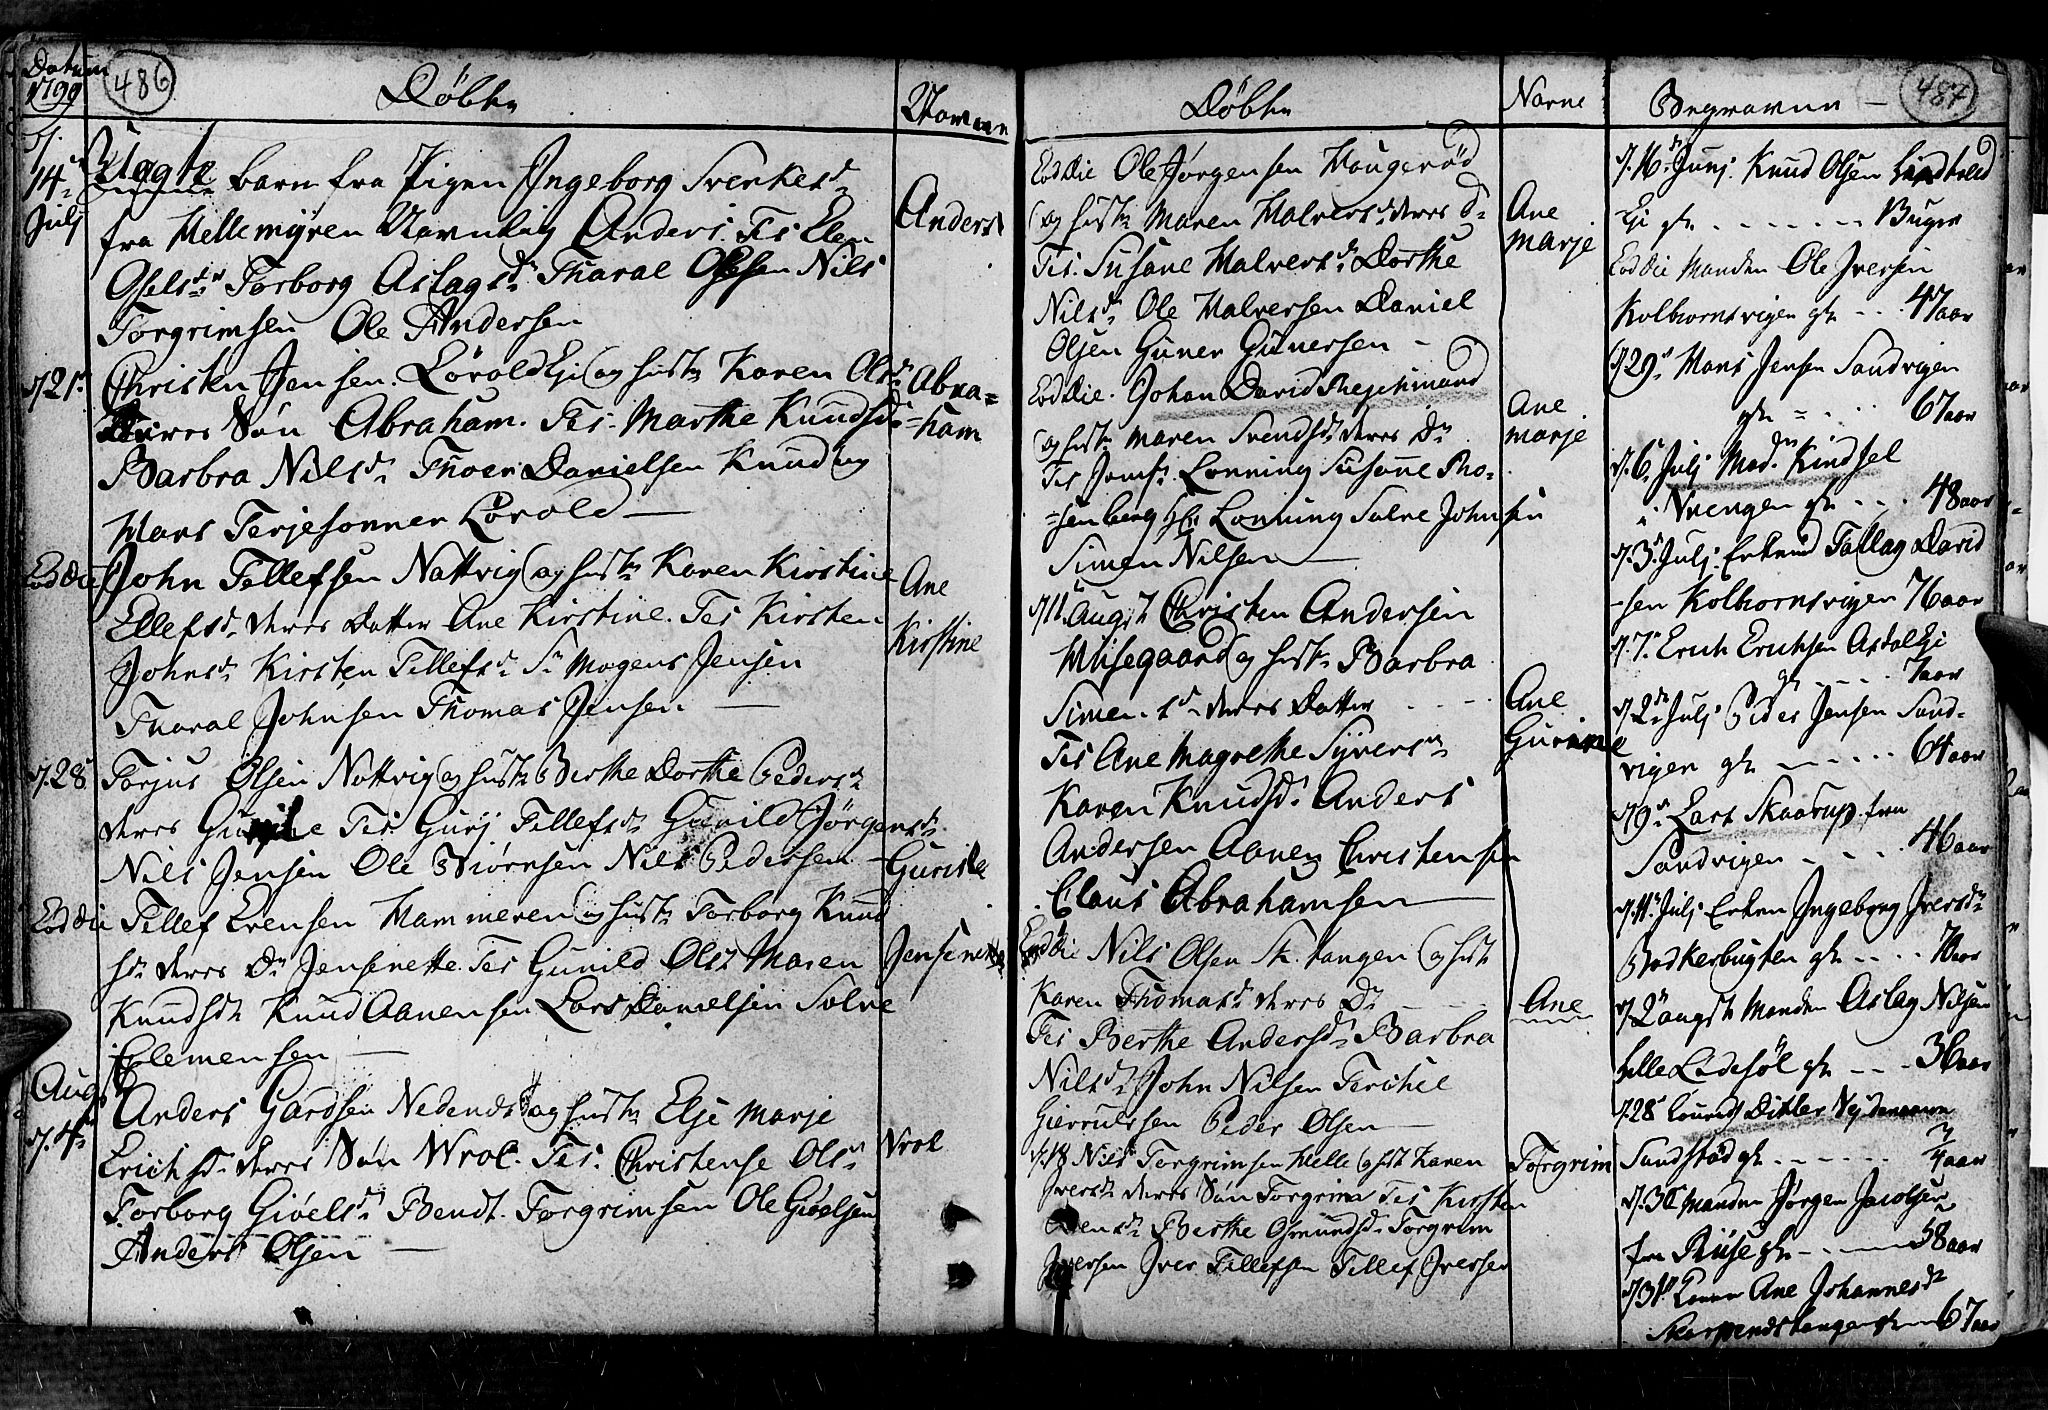 Datum
1799
486
Døbte
Navne
D. 14de
Julj
Uægte barn fra Pigen Ingeborg Sverkesd:
fra Hellemyren Navnlig Anders. Tes Elen
Osels d: Torborg Aslagsd: Tharal Olsen Nils
Torgrimsen Ole Andersen
Anders
D. 21
Christen Jensen. Løvold Ej og hust: Karen Olsd:
deres Søn Abraham. Tes. Marthe Knudsd:
Barbra Nilsd: Thoer Danielsen Knud og
Hans Terjesønner Løvold
Abra=
=ham
Eod die
John Tellefsen Nattvig og hust: Karen Kirstine
Ellefsd: deres Datter Ane Kirstine. Tes Kirsten
Johnsd: Kirsten Tellefsd: Sr Mogens Jensen
Tharal Johnsen Thomas Jensen
Ane
Kirstine
D. 28
Torjus Olsen Nattvig og hust: Berthe Dorthe Pedersd:
deres Tes Gurj Tellefsd: Gunild Jørgensd:
Nils Jensen Ole Biørnsen Nils Pedersen
Eod die
Tellef Evensen Hammeren og hust: Torborg Knud
sd: deres Dr Jensenette. Tes Gunild Olsd: Maren
Knudsd: Knud Aanensen Lars Danielsen Salve
Clemensen
Jensenette
Aug
D. 4de
Anders Gardsen Nedenes og hust: Elje Marje
Erichsd: deres Søn Wrol. Tes. Christense Olsd:
Torborg Giøelsd: Bendt Torgrimsen Ole Giøelsen
Anders Olsen
Wrol
487
Døbte
Navne
Begravne
Eod die Ole Jørgensen Haugerød
og hust: Maren Halvorsd: deres D:
Tes. Susane Halvorsd: Dorthe
Nilsd: Ole Halversen Daniel
Olsen Guner Gunersen
Ane
Marje
Eod die. Johan David
og hust: Maren Svendsd: deres Dr
Tes Jomf: Lonning Susane Ro=
=senberg Hr Lonning Salve Johnsen
Simen Nilsen
Ane
Marje
D. 11 Augst Christen Andersen
og hust: Barbra
Simensd: deres Datter
Tes Ane Magrethe Syversd:
Karen Knudsd: Anders
Andersen Aanen Christensen
Claus Abrahamsen
Ane
Gurine
Eod die Nils Olsen St. tangen og hust
Karen Thomasd: deres Dr
Tes Berthe Andersd: Barbra
Nilsd: John Nilsen Terchel
Gieruldsen Peder Olsen
Ane
D. 18 Nils Torgrimsen Helle og hust Karen
Iversd: deres Søn Torgrim Tes Kirsten
Evensd: Berthe Osmundsd: Torgrim
Iversen Iver Tellefsen Tellef Iversen
Torgrim
D. 16de Junj. Knud Olsen
Ej gl. Buger
Eod die Manden Ole Iversen
Kolbiornsvigen gl. 47 aar
D 29de Hans Jensen Sandvigen
gl. 67 aar
D. 6 Julj Mad: Kindsel
Vrengen gl. 48 aar
D. 3 Julj. Tallag David
=sen Kolbiornsvigen 76 aar
D. 7de Erich Erichsen Asdal Ej
gl. 7 aar
D. 2de Julj Peder Jensen Sand=
vigen gl. 64 aar
D 9de Lars Skaarup fra
Sandvigen 46 aar
D. 11 Julj Enken Ingeborg Iversd:
Bodkerbugten gl. 70 aar
D. 2 Augst Manden Aslag Nilsen
gl. 36 aar
D. 28 Ditler
gl. aar
D. 30 Manden Jørgen Jacobsen
fra gl. 58 aar
D 31 Konen Ane Johannesd:
67 aar